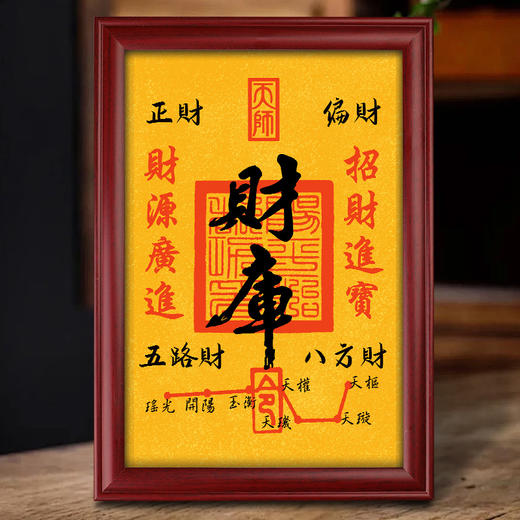 天師
正財
偏財
財源廣進
招財進寶
財庫
五路財
八方財
令
瑤光
開陽
玉衡
天權
天璣
天璇
天樞